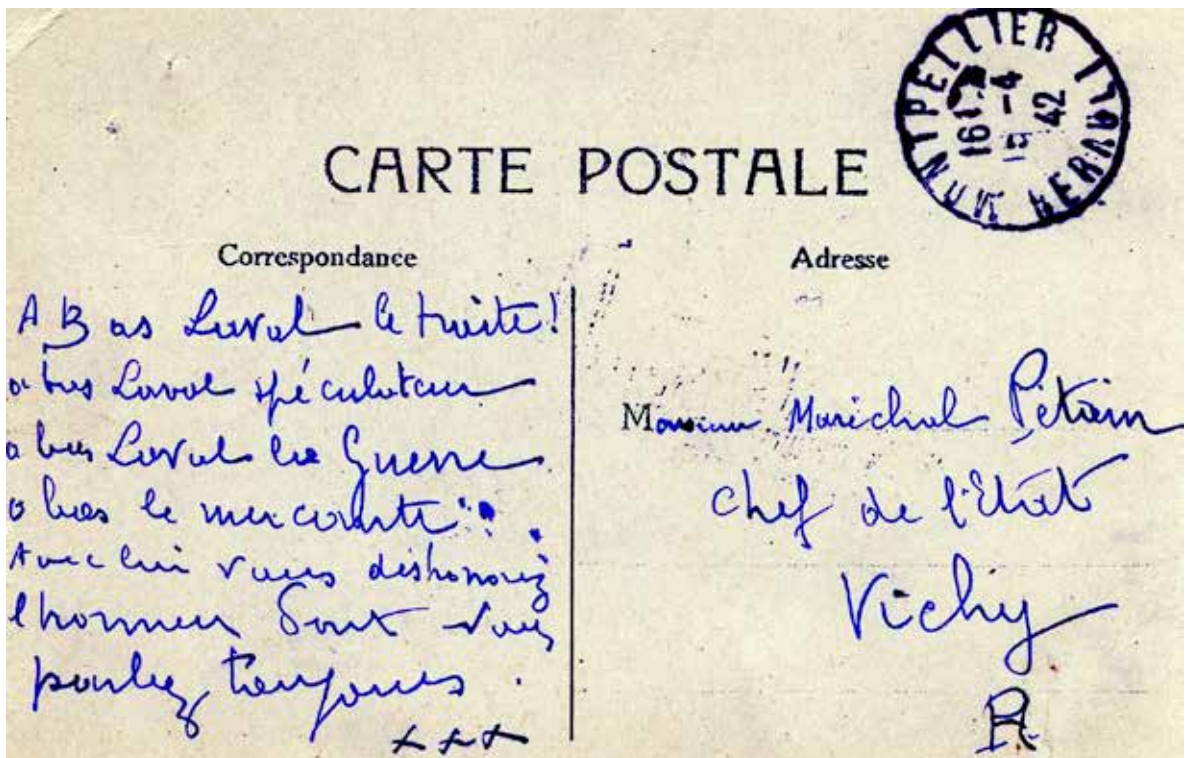 MONTPELLIER HERAULT
42
CARTE POSTALE
Correspondance
A Bas Laval le traite!
a bas Laval spéculateur
a bas Laval la Guerre
a bas le
Avec lui vous déshonorez
l honneur Dont vous
parlez toujours.
+++
Adresse
Monsieur Maréchal Pétain
chef de l'Etat
Vichy